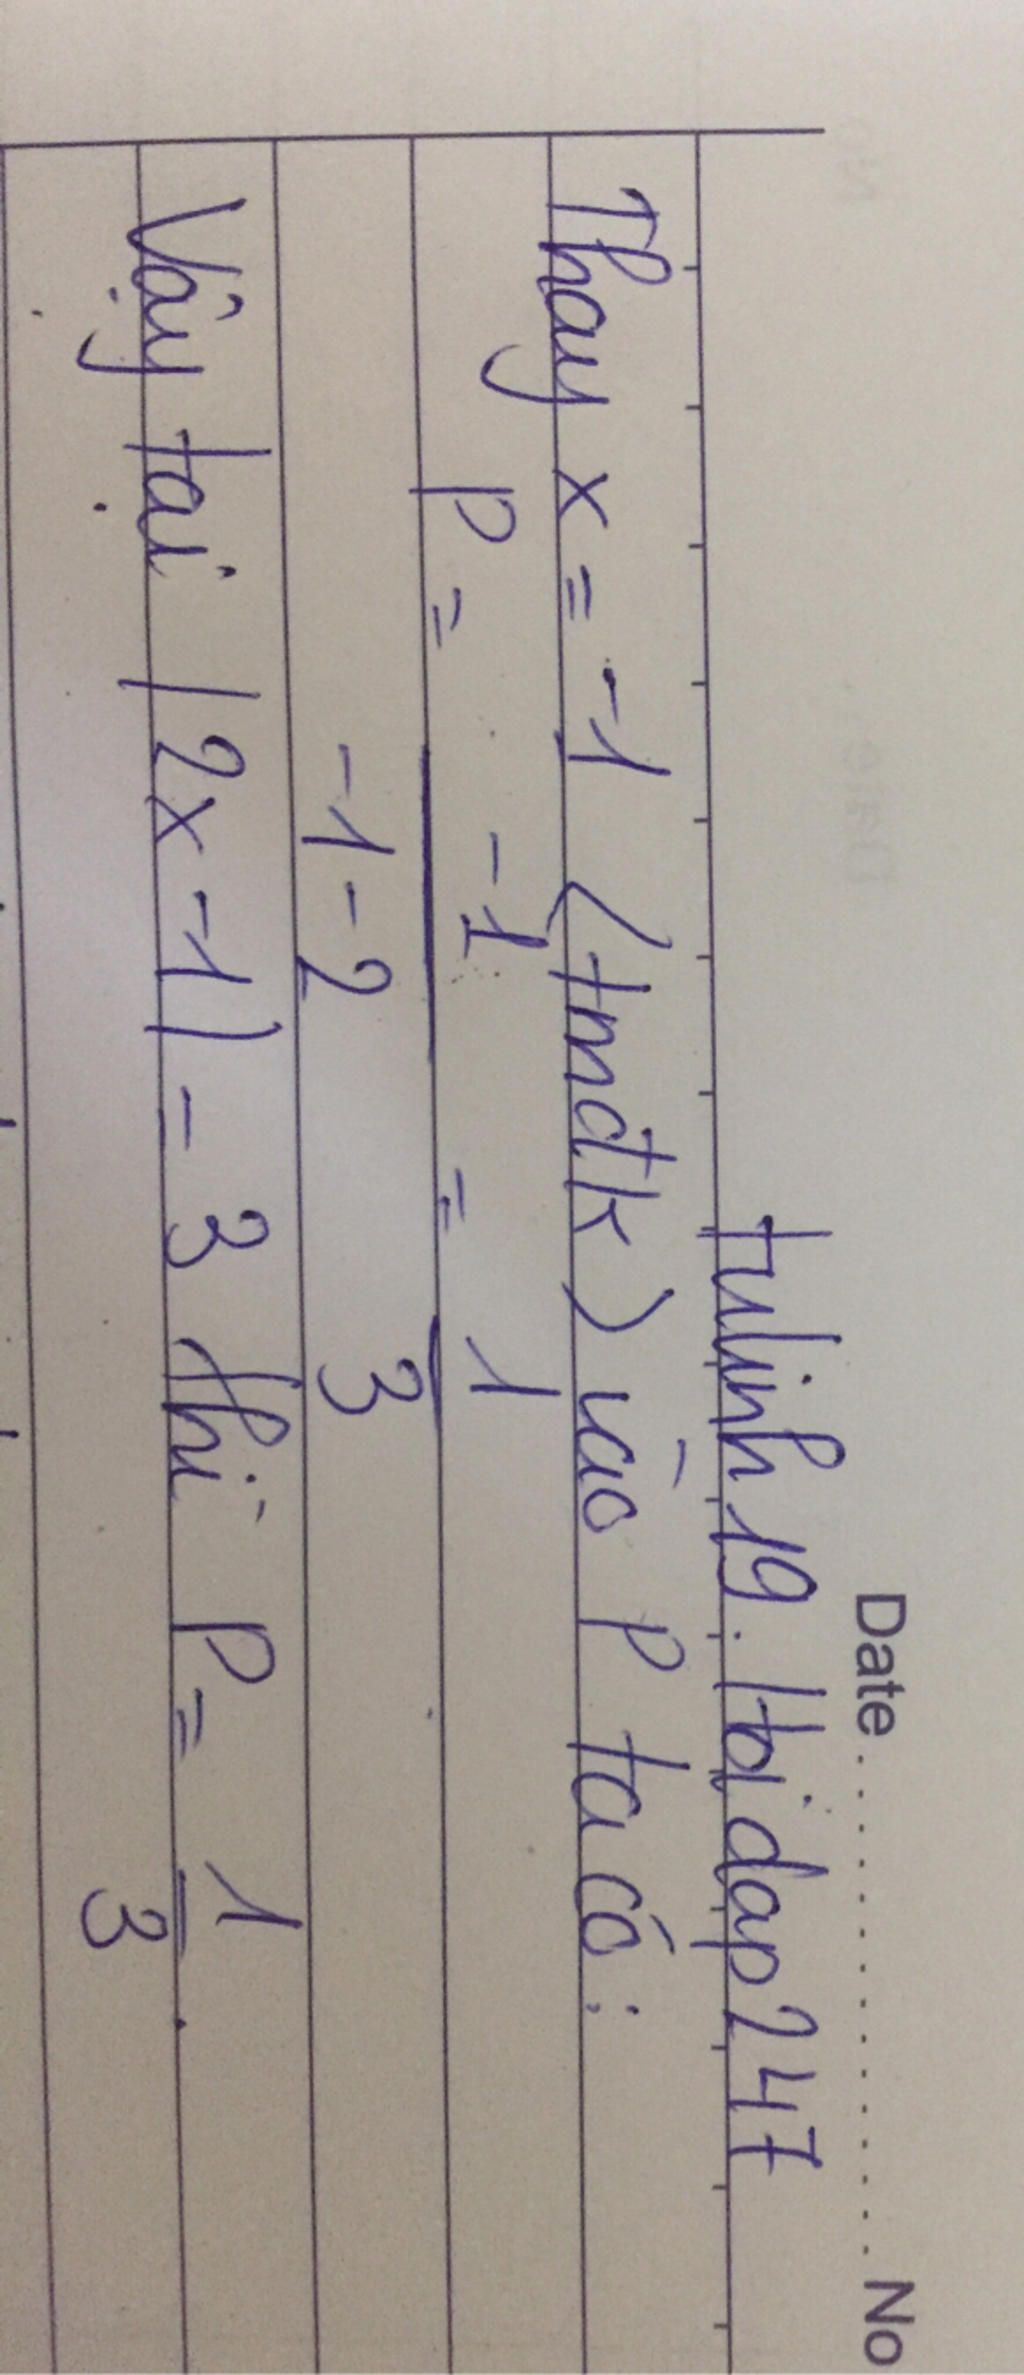 Date.................No
tulinh19. Hoidap247
Thay x = -1 (tmđk) vào P ta có:
P = -1 / -1-2 = 1 / 3
Vậy tại |2x-1| = 3 thì P = 1/3.